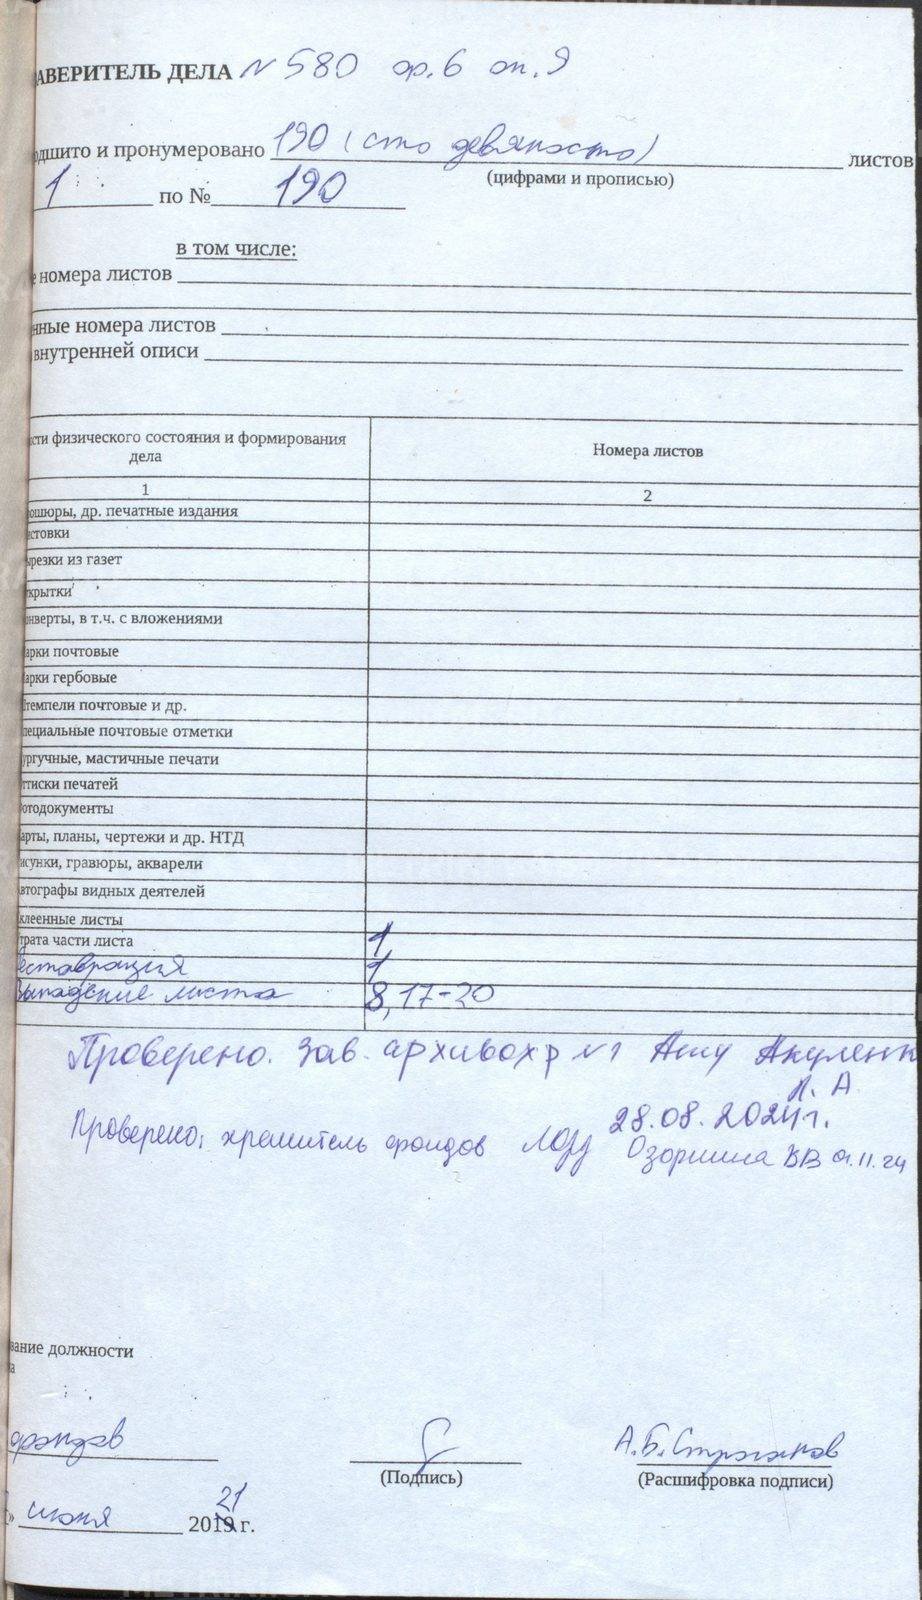 АВЕРИТЕЛЬ ДЕЛА № 580 ф.6 оп.9
одшито и пронумеровано 190 (сто девяносто) листов
(цифрами и прописью)
1 по № 190
в том числе:
е номера листов
нные номера листов
внутренней описи
сти физического состояния и формирования дела Номера листов
1 2
ошюры, др. печатные издания
стовки
ырезки из газет
крытки
нверты, в т.ч. с вложениями
арки почтовые
арки гербовые
темпели почтовые и др.
пециальные почтовые отметки
ургучные, мастичные печати
ттиски печатей
отодокументы
арты, планы, чертежи и др. НТД
исунки, гравюры, акварели
втографы видных деятелей
клеенные листы
трата части листа 1
еставрация 1
Выпадение листа 8, 17-20
Проверено. Зав. архивохр №1 Акуленк
Л. А.
28.08.2024г.
Проверено, хранитель фондов Озорнина ВВ 01.11.24
вание должности
а
фондов А.Б. Строганов
(Подпись) (Расшифровка подписи)
» июня 2019 21 г.